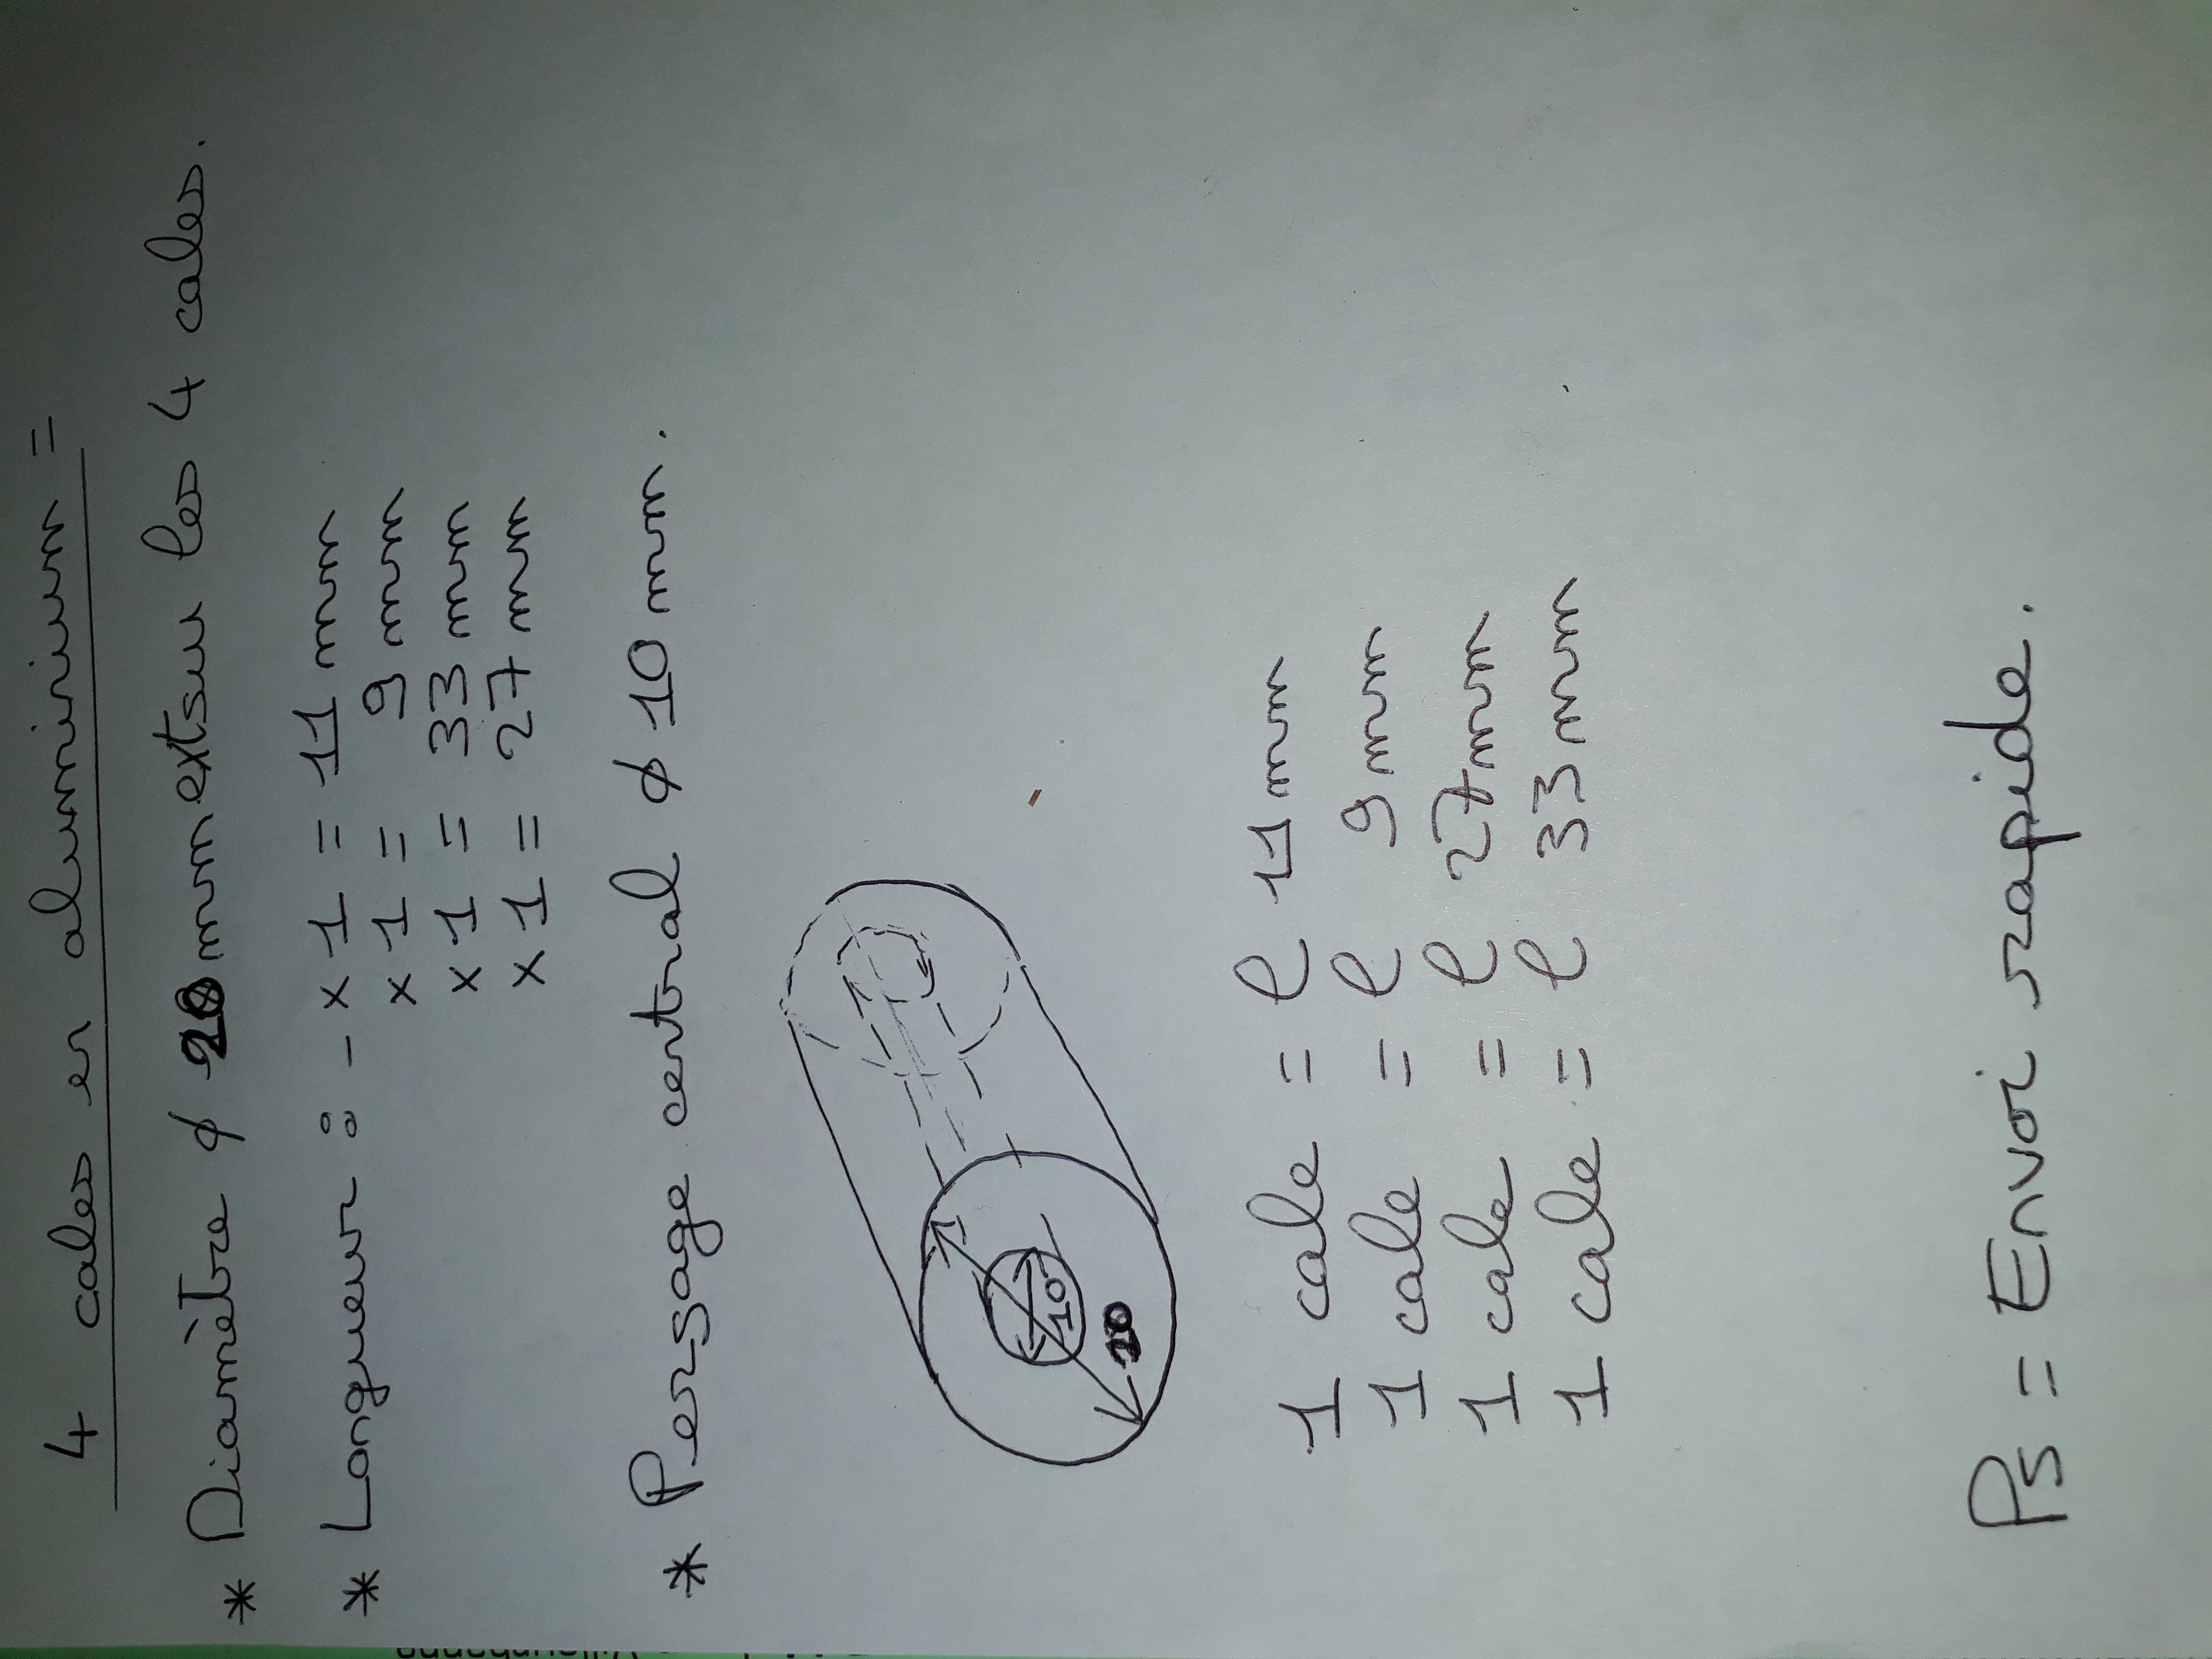 4 cales en aluminium =
* Diamètre ø 20 mm extsur les 4 cales.
* Longueur : - x 1 = 11 mm
x 1 = 9 mm
x 1 = 33 mm
x 1 = 27 mm
* Persage central ø 10 mm.
10
20
1 cale = l 11 mm
1 cale = l 9 mm
1 cale = l 27 mm
1 cale = l 33 mm
Ps = Envoi rapide.